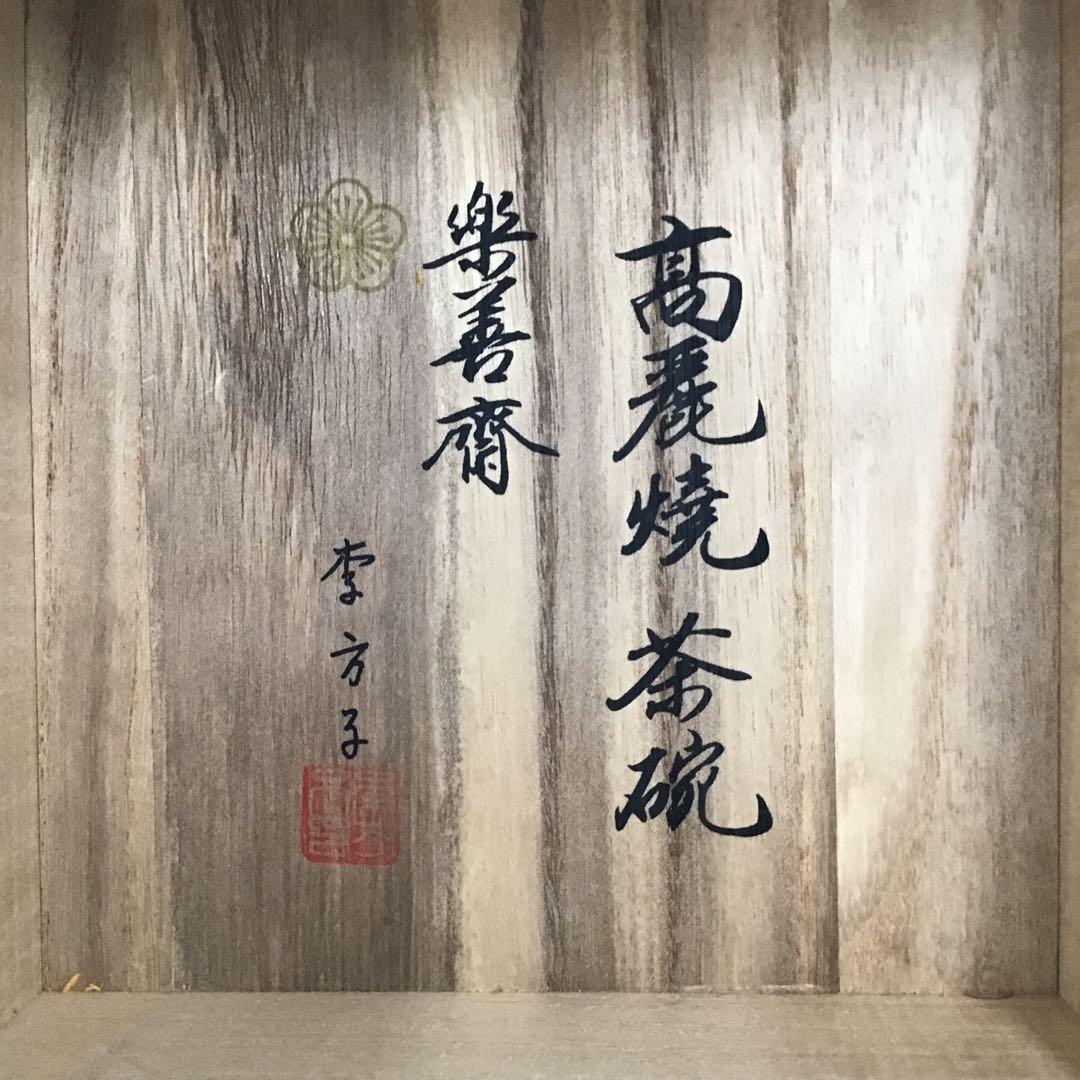 高麗燒 茶碗
樂善齋
李方子